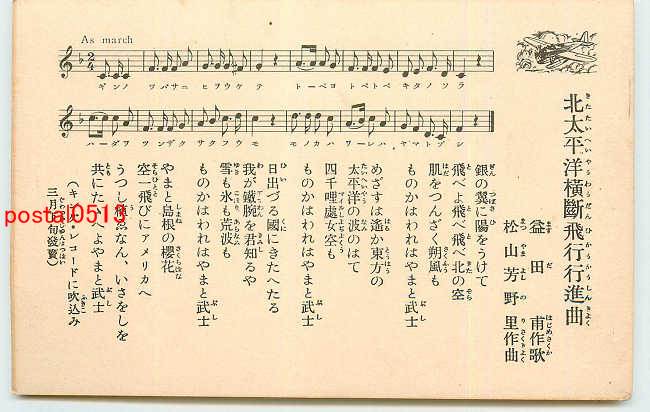 北太平洋横斷飛行行進曲
益田甫作歌
松山芳野里作曲
As march
ギンノ ツバサニ ヒヲウケ テ
トベヨ トベトベ キタノソ ラ
ハダヲ ツンザク サクフウ モ
モノカハ ワレハ ヤマトブ シ
銀の翼に陽をうけて
飛べよ飛べ飛べ北の空
肌をつんざく朔風も
ものかはわれはやまと武士
めざすは遙か東方の
太平洋の波のはて
四千哩處女空も
ものかはわれはやまと武士
日出づる國にきたへたる
我が鐵腕を君知るや
雪も氷も荒波も
ものかはわれはやまと武士
やまと島根の櫻花
空一飛びにアメリカへ
うつし植ゑなん、いさをしを
共にたゝへよやまと武士
レコードに吹込み
三月 旬發賣)
postal0513